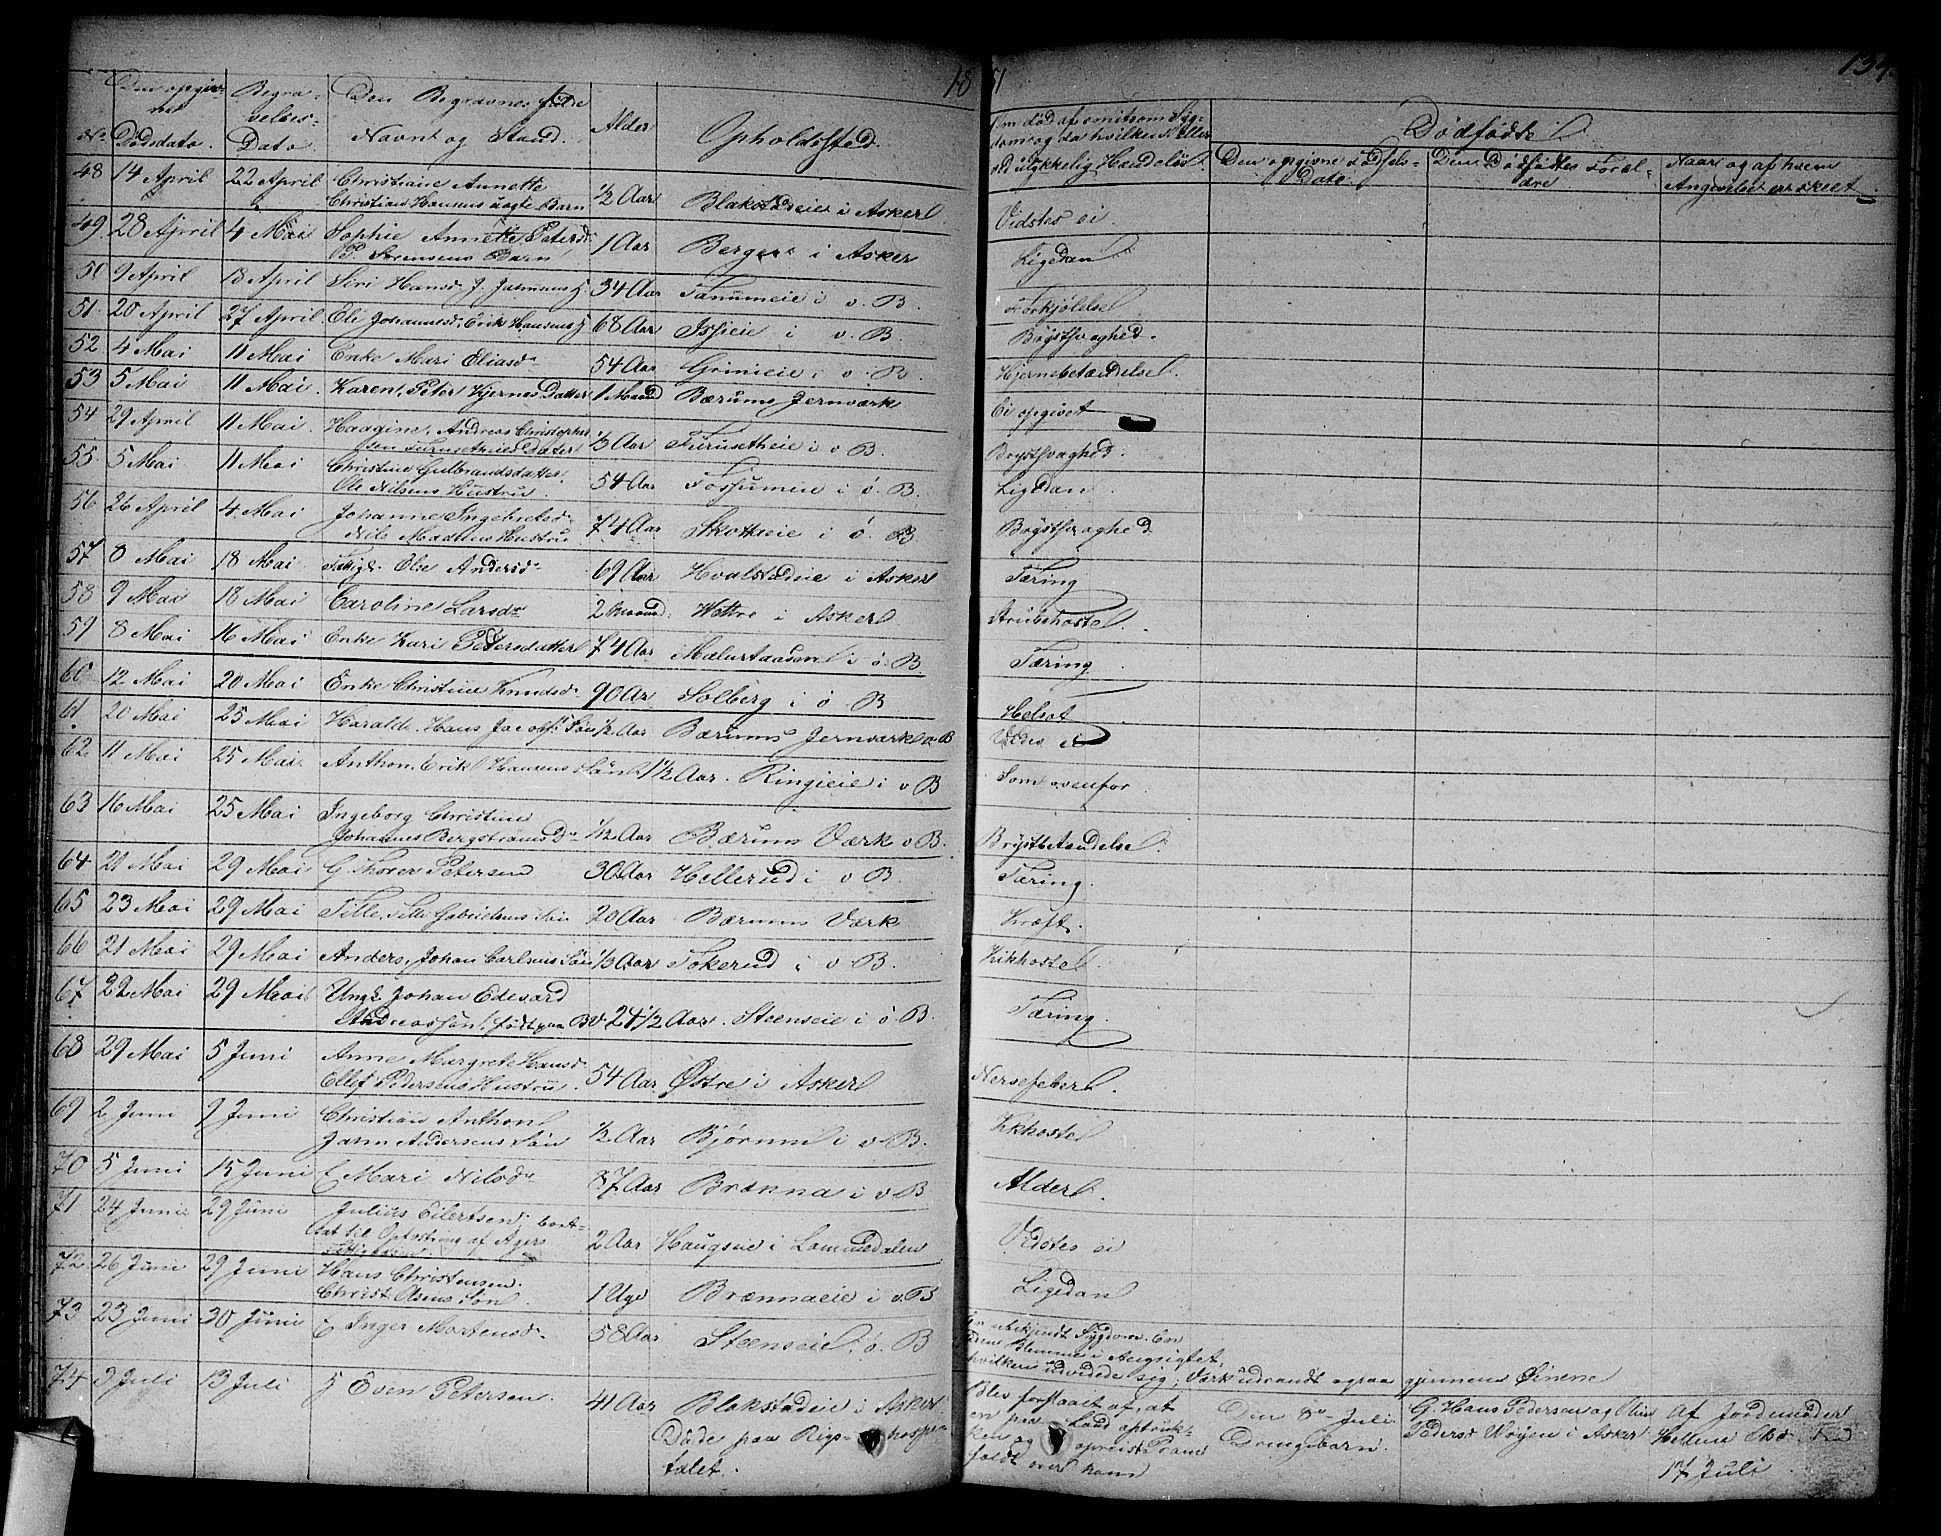 18 51
134.
No.
Den opgivne Dødsdato.
Begravelses-Dato
Den Begravnes fulde Navn og Stand.
Alder
Opholdssted.
Om død af smitsom Sygdom og da hvilken eller ved ulykkelig Hændelse.
Dødfødte
Den opgivne Fødsels-Dato.
Den Dødfødtes Forældre
Naar og af hvem Angivelse er skeet.
48 14 April 22 April Christiane Annette Christians Hansens uægte Barn ½ Aar Blakstadeie i Asker Vidstes ei
49. 28 April 4 Mai Sophie Annette Petersd. P. Sørensens Barn 1 Aar Berger i Asker Ligedan
50 9 April 13 April Siri Hansd. 34 Aar Tanumeie i v. B. Forkjølelse
51. 20 April 27 April. Eli Johannesd. Erik Hansens H 68 Aar i v. B. Brystsvaghed.
52 4 Mai 11 Mai Enke Mari Eliasdr 54 Aar Grinieie i v. B. Hjernebetændelse.
53 5 Mai 11 Mai. Karen, Peter Hjernes Datter 1 Maaned Bærums Jernværk Ei opgivet
54 29 April 11 Mai. Haagine, Andreas Christophersen Furusetheies Datter ⅓ Aar Furusetheie i v B. Brystsvaghed.
55 5 Mai 11 Mai Christine Gulbrandsdatter Ole Nilsens Hustru. 54 Aar Fossumeie i ø. B. Ligedan
56 26 April 4 Mai Johanne Ingebretsd. Nils Madsens Hustru 74 Aar Skotteeie i ø. B Brystsvaghed
57 8 Mai 18 Mai. Fattigl. Else Andersdr 69 Aar Hvalstadeie i Asker Tæring
58 9 Mai 18 Mai Caroline Larsdr 2 Maaned. Hættre i Asker Strubehoste.
59 8 Mai 16 Mai Enke Kari Petersdatter 74 Aar i ø. B Tæring
60 12 Mai 20 Mai Enke Christine Knudsd. 90 Aar Solberg i ø B Helsot
61. 20 Mai 25 Mai Haralde, Hans Jacobs. Søn ½ Aar Bærums Jernværk v. B Vides ei
62. 11 Mai 25 Mai Anthon, Erik Hansens Søn 1½ Aar. Ringieie i v B Som ovenfor
63 16 Mai 25 Mai Ingeborg Christine Johannes Bergstrøms Dr ½ Aar Bærums Værk v B. Brystbetændelse
64 21 Mai 29 Mai G. Thorer Petersen 30 Aar Hellerud i v B. Tæring.
65 23 Mai 29 Mai Tille, Tille Gabrielsens Søn 20 Aar Bærums Værk Kræft.
66 21 Mai 29 Mai Anders, Johan Carlsens Søn ⅓ Aar Tokerud i v B. Kikhoste
67. 22 Mai 29 Mai Ungk. Johan Edevard Andreassøn, født paa B.V. 24½ Aar. Steenseie i ø B. Tæring.
68 29 Mai 5 Juni Anne Margrete Hansd. Ellef Pedersens Hustru. 54 Aar Østre i Asker Nervefeber.
69 2 Juni 9 Juni Christian Anthon Jahn Andersens Søn ½ Aar Bjørum i v B. Kikhoste
70 5 Juni 15 Juni E Mari Nilsdr 87 Aar Brækna i v B Alder.
71 24 Juni 29 Juni Julius Eilertsen, bortsat til Opfostring af Agers 2 Aar Haugseie i Lommedalen Vidstes ei
72 26 Juni 29 Juni Hans Christensen. Christ. Olsens Søn 1 Uge Brænnaeie i v. B Ligedan
73 23 Juni 30 Juni E Inger Mortensdr 58 Aar Steenseie i ø. B En ubekjendt Sygdom. En Blemme i Ansigtet, hvilken udvidede sig, Værk udrandt ogsaa gjennem Øinene
74 3 Juli 13 Juli G Even Petersen. 41 Aar Blakstadeie i Asker Døde paa Rigshospitalet. Blev
Den 8de Juli. Drengebarn. G. Hans Pedersen og Pedersd Wøyen i Asker af Jordemoder Hellene 17 Juli